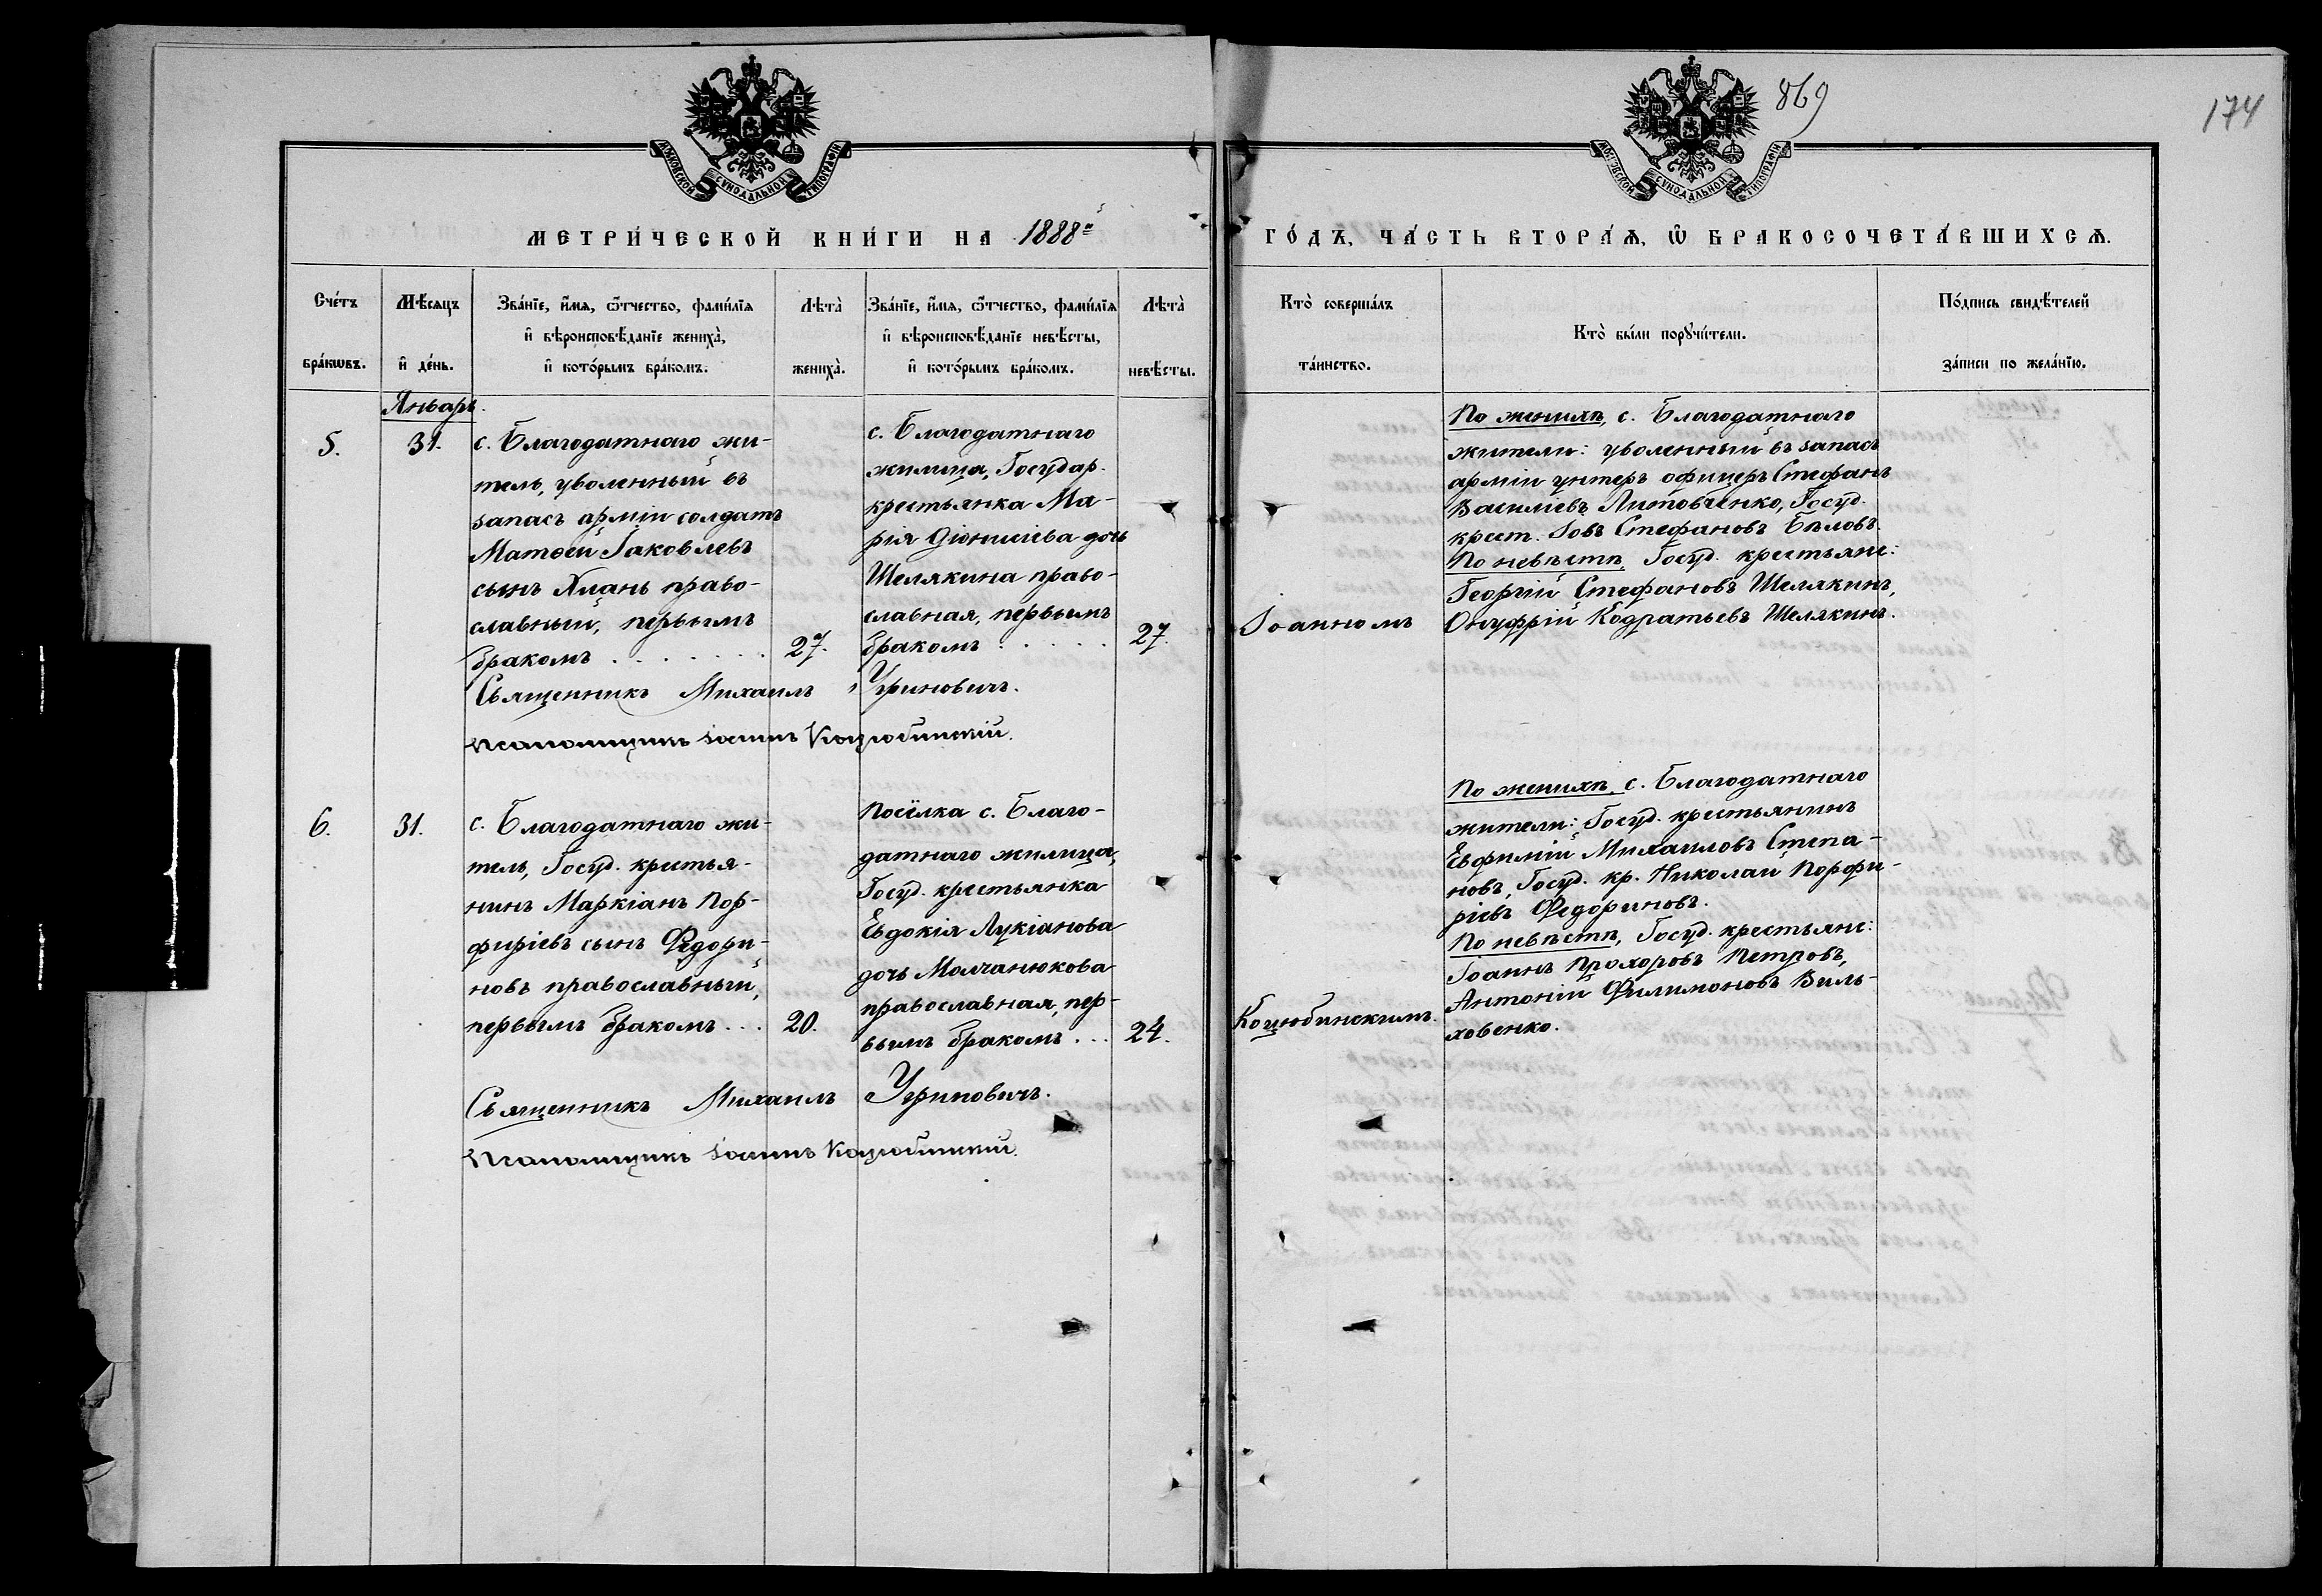 869
174
МОСКОВСКОЙ СѴНОДАЛЬНОЙ ТИПОГРАФІИ
МОСКОВСКОЙ СѴНОДАЛЬНОЙ ТИПОГРАФІИ
МЕТРИ́ЧЕСКОЙ КНИ́ГИ НА 1888й
ГО́ДЪ, ЧА́СТЬ ВТОРА́Ѧ, Ѽ БРАКОСОЧЕТА́ВШИХСѦ.
Сче́тъ
бра́кѡвъ.
Мѣ́сѧцъ
и҆ де́нь.
Зва́нїе, и҆́мѧ, ѻ҆́тчество, фами́лїѧ
и҆ вѣроисповѣ́данїе жениха̀,
и҆ кото́рымъ бра́комъ.
Лѣта̀
жениха̀.
Зва́нїе, и҆́мѧ, ѻ҆́тчество, фами́лїѧ
и҆ вѣроисповѣ́данїе невѣ́сты,
и҆ кото́рымъ бра́комъ.
Лѣта̀
невѣ́сты.
Кто̀ соверша́лъ
та́инство.
Кто̀ бы́ли порꙋчи́тели.
По́дпись свидѣ́телей
за́писи по жела́нїю.
Январь.
5.
31.
с. Благодатнаго жи-
тель, уволенный въ
запасъ арміи солдатъ
Матѳей Іаковлевъ
сынъ Хмань право-
славный, первымъ
бракомъ . . . . . . .
27.
с. Благодатнаго
жилица, Государ.
крестьянка Ма-
рія Діонисіева дочь
Шелякина право-
славная, первымъ
бракомъ . . . . .
27.
Іоанномъ
По женихѣ, с. Благодатнаго
жители: уволенный въ запасъ
арміи унтеръ офицеръ Стефанъ
Василіевъ Литовченко, Госуд.
крест. Іовъ Стефановъ Бѣловъ.
По невѣстѣ, Госуд. крестьяне:
Георгій Стефановъ Шелякинъ,
Онуфрій Кодратьевъ Шелякинъ.
Священникъ Михаилъ Угриновичъ.
Псаломщикъ Іоаннъ Коцюбинскій.
6.
31.
с. Благодатнаго жи-
тель, Госуд. крестья-
нинъ Маркіанъ Пор-
фиріевъ сынъ Ѳедори-
новъ православный,
первымъ бракомъ . . .
20.
Посёлка с. Благо-
датнаго жилица,
Госуд. крестьянка
Евдокія Лукіанова
дочь Молчанюкова
православная, пер-
вымъ бракомъ . . .
24.
Коцюбинскимъ.
По женихѣ, с. Благодатнаго
жители: Госуд. крестьянинъ
Евфимій Михаиловъ Степа-
новъ, Госуд. кр. Николай Порфи-
ріевъ Ѳедориновъ.
По невѣстѣ, Госуд. крестьяне:
Іоаннъ Прохоровъ Петровъ,
Антоній Филимоновъ Виль-
ховенко.
Священникъ Михаилъ Угриновичъ.
Псаломщикъ Іоаннъ Коцюбинскій.